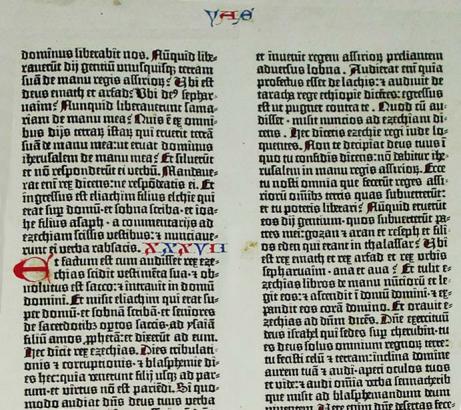 dominus liberabit nos. Nūquid libe-
rauerūt dij gentiū unusquisq; terram
suā de manu regis assirioꝝ? Ubi est
deus emath et arfad? Ubi de9 sephar-
uaim? Nunquid liberauerunt sama-
riam de manu mea? Quis ē ex omni-
bus dijs terraꝝ istaꝝ qui eruerit terrā
suā de manu mea: ut eruat dominus
iherusalem de manu mea? Et siluerūt
et nō respondeɾūt ei verbū. Mandaue-
rat enī rex dicens: ne respōdeatis ei. Et
ingressus est eliachim filius elchie qui
erat suꝑ domū et sobna scriba et ioa-
he filius asaph · a cōmentarijs ad
ezechiam scissis vestibus: ⁊ nunciaue-
runt ei verba rabsacis. XXXVII
Et factum est cum audisset rex eze-
chias scidit vestimēta sua · ⁊ ob-
uolutus est sacco: ⁊ intrauit in domū
domini. Et misit eliachim qui erat su-
per domū et sobnam scribā et seniores
de sacerdotibꝫ optos saccis · ad ysaiā
filiū amos ꝓphetā: et dixerūt ad eum.
Hec dicit rex ezechias. Dies tribulati-
onis ⁊ correptionis · ⁊ blasphemie di-
es hec: quia venerunt filij usq; ad par-
tum · et virtus nō est pariēdi. Si quo-
modo audiat dn̄s deus tuus verba
et inuenit regem assirioꝝ preliantem
aduersus lobna. Audierat enī quia
profectus esset de lachis: ⁊ audiuit de
taracha rege ethiopie dicētes: egressus
est ut pugnet contra te. Quod cū au-
disset · misit nuncios ad ezechiam di-
cens. Hec dicetis ezechie regi iude lo-
quentes. Non te decipiat deus tuus ī
quo tu confidis dicens: nō dabitur ihe-
rusalem in manu regis assirioꝝ. Ecce
tu nosti omnia que fecerūt reges assi-
rioꝝ omībꝫ terris quas subuerterūt:
et tu poteris liberari? Nūquid eruerūt
eos dij gentium · quos subuerterūt pa-
tres mei: gozan ⁊ aran et reseph et fili-
os eden qui erant in thalassar? Ubi
est rex emath et rex arfad et rex urbis
sepharuaim · ana et aua? Et tulit e-
zechias libros de manu nūcioꝝ et le-
git eos: ⁊ ascendit ī domū domini · ⁊ ex-
pandit eos corā domino. Et orauit e-
zechias ad dūm dicēs. Dn̄e exercituū
deus israhel qui sedes suꝑ cherubin · tu
es deus solus omnium regnoꝝ terre:
tu fecisti celū ⁊ terram: inclina domine
aurem tuā ⁊ audi · aperi oculos tuos
et vide: ⁊ audi omīa verba sennacherib
que misit ad blasphemandū deum